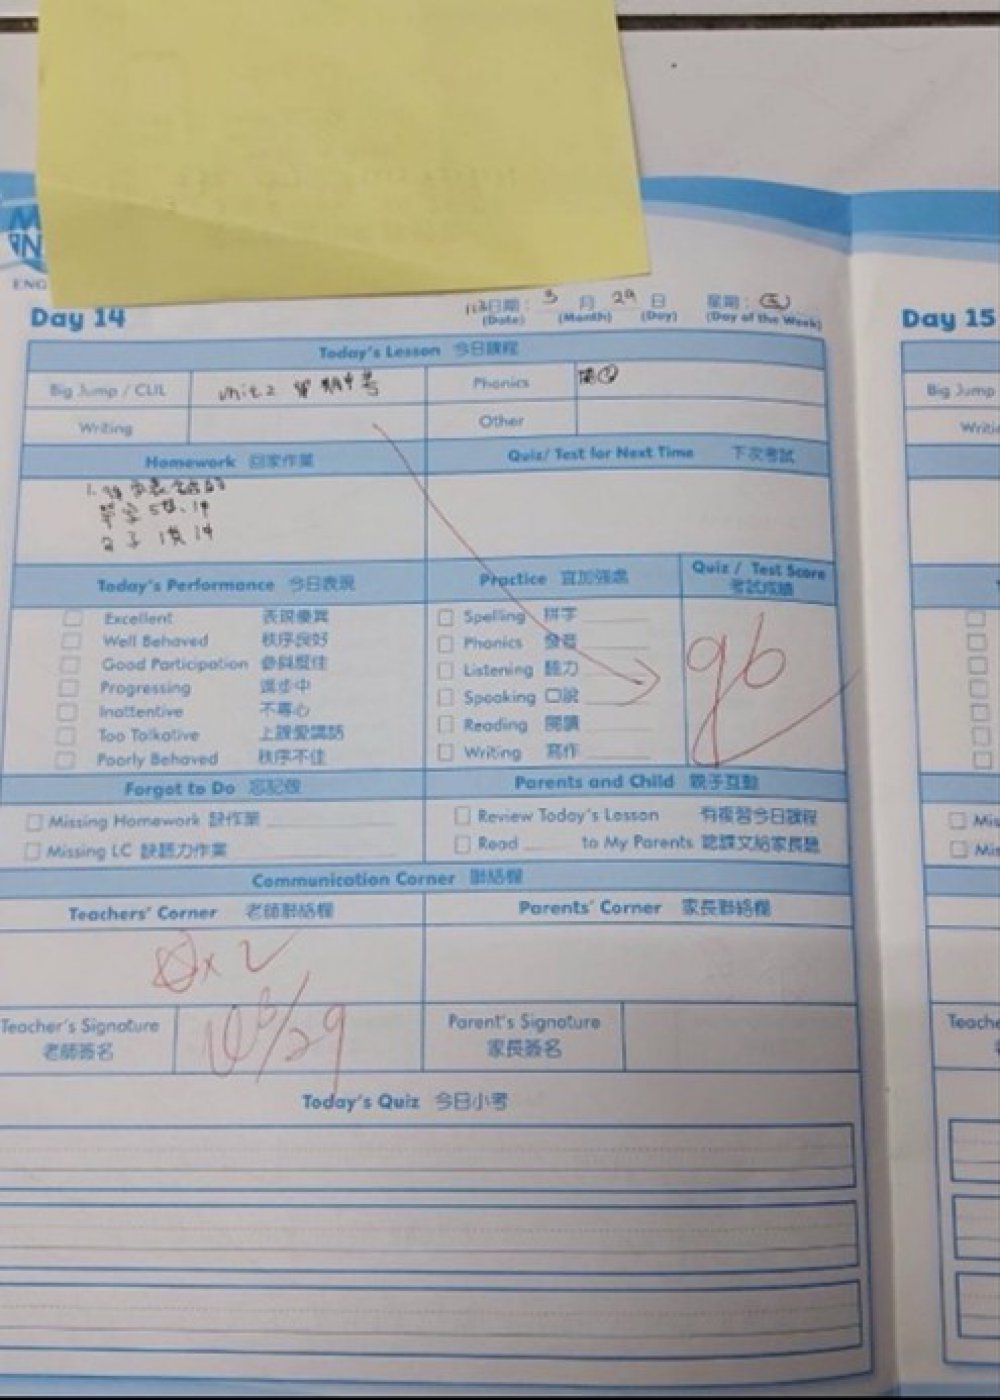 ENG
Day 14
113日期： 3 月 29 日 星期： ㊄
(Date) (Month) (Day) (Day of the Week)
Today's Lesson 今日課程
Big Jump / CLIL Unit 2 期中考 Phonics
Writing Other
Homework 回家作業 Quiz/ Test for Next Time 下次考試
1.
單字 5
句子 1
Today's Performance 今日表現 Practice 宜加強處 Quiz / Test Score 考試成績
Excellent 表現優異 Spelling 拼字
Well Behaved 秩序良好 Phonics 發音
96
Good Participation 參與度佳 Listening 聽力
Progressing 進步中 Speaking 口說
Inattentive 不專心 Reading 閱讀
Too Talkative 上課愛講話 Writing 寫作
Poorly Behaved 秩序不佳
Forgot to Do 忘記做 Parents and Child 親子互動
Missing Homework 缺作業 Review Today's Lesson 有複習今日課程
Missing LC 缺聽力作業 Read to My Parents 唸課文給家長聽
Communication Corner 聯絡欄
Teachers' Corner 老師聯絡欄 Parents' Corner 家長聯絡欄
x 2
Teacher's Signature 3/29 Parent's Signature
老師簽名 家長簽名
Today's Quiz 今日小考
Day 15
Big Jump